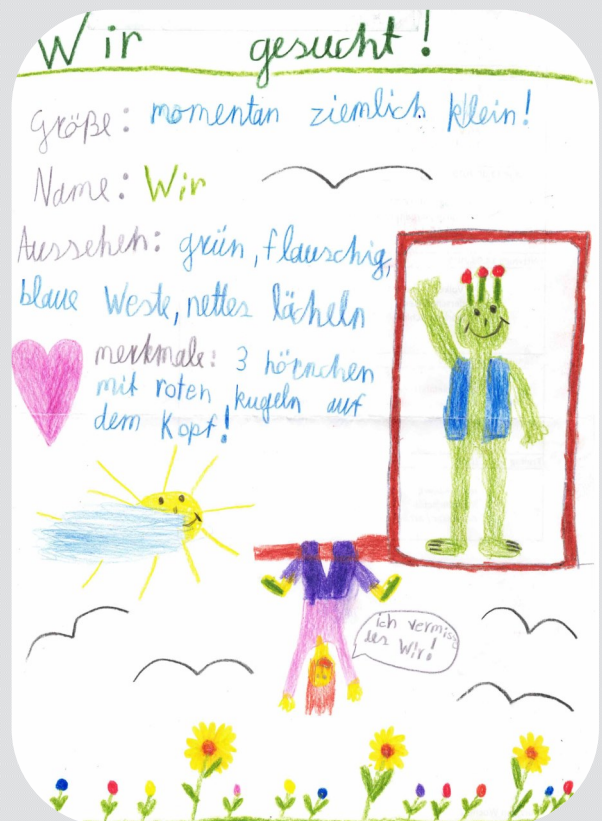 Wir gesucht!
Größe: momentan ziemlich klein!
Name: Wir
Aussehen: grün, flauschig,
blaue Weste, nettes lächeln
merkmale: 3 hörnchen
mit roten kugeln auf
dem Kopf!
ich vermis
des Wir!